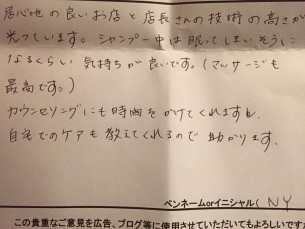 居心地の良いお店と店長さんの技術の高さが
光っています。シャンプー中は眠ってしまいそうに
なるくらい気持ちが良いです。(マッサージも
最高です。)
カウンセリングにも時間をかけてくれますし、
自宅でのケアも教えてくれるので助かります。
ペンネームorイニシャル( NY
この貴重なご意見を広告、ブログ等に使用させていただいてもよろしいですか